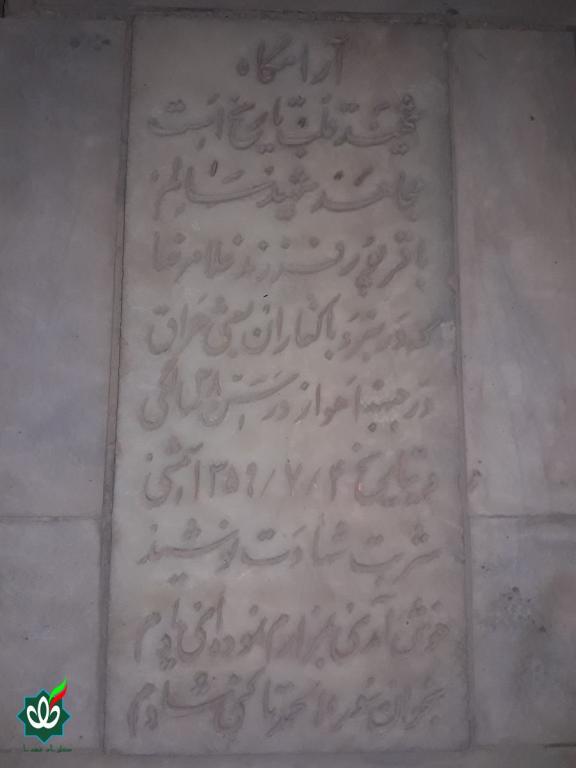 آرامگاه
شهید قلب تاریخ است
مجاهد شهید سالم
باقرپور فرزند غلامرضا
که در نبرد با کفاران بعثی عراق
در جبهه اهواز در سن ۲۸ سالگی
در تاریخ ۱۳۵۹/۷/۴ شمسی
شربت شهادت نوشید
خوش آمدی بمزارم نموده‌ای یادم
بخوان سوره الحمد تا کنی شادم